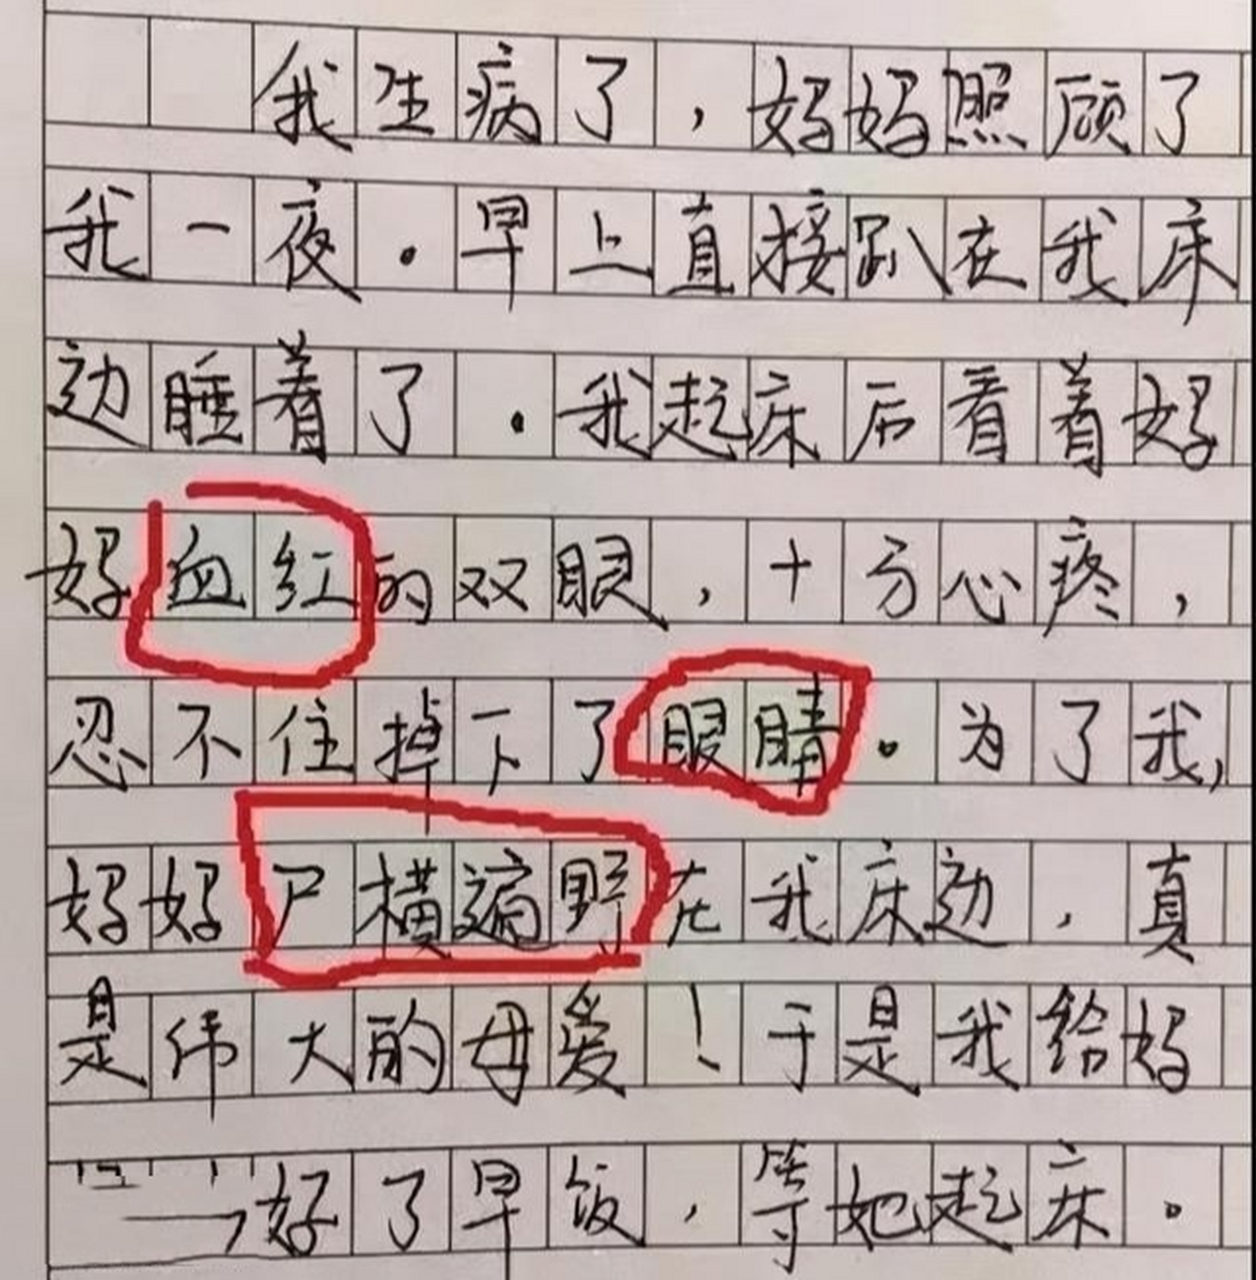 我生病了，妈妈照顾了
我一夜。早上直接趴在我床
边睡着了。我起床后看着妈
妈血红的双眼，十分心疼，
忍不住掉下了眼睛。为了我，
妈妈尸横遍野在我床边，真
是伟大的母爱！于是我给妈
好了早饭，等她起床。